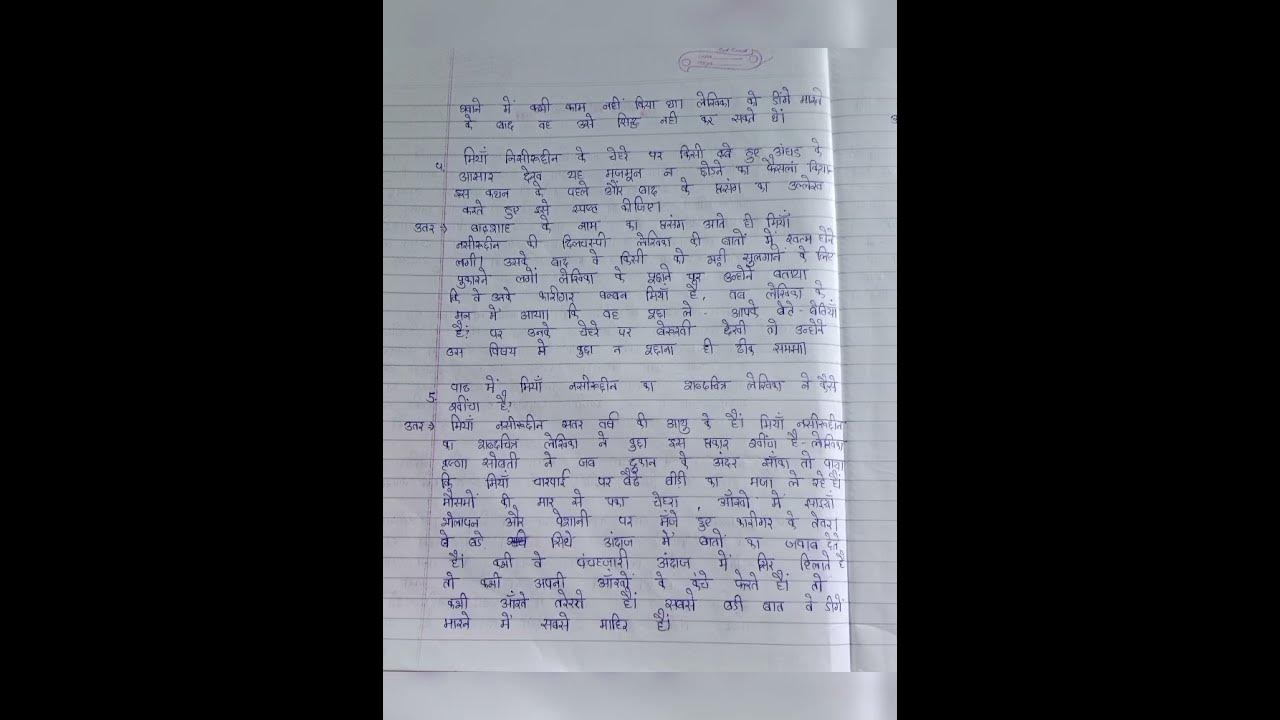 खाने में कभी काम नहीं किया था। लेखिका को डींगे मारने
के बाद वह उसे सिद्ध नही कर सकते थे।
4. मियाँ निसीरूद्दीन के चेहरे पर किसी दबे हुए अंधड के
आसार देख यह मजमून न छोडने का फैसला किया-
इस कथन के पहले और बाद के प्रसंग का उल्लेख
करते हुए इसे स्पष्ट कीजिए।
उतर ⇒ बादशाह के नाम का प्रसंग आते ही मियाँ
नसीरूद्दीन की दिलचस्पी लेखिका की बातों में खत्म होने
लगी। उसके बाद वे किसी को भट्ठी सुलगाने के लिए
पुकारने लगे। लेखिका के पूछने पर उन्होने बताया
कि वे उनके कारीगर बब्बन मियाँ है, तब लेखिका के
मन में आया। कि वह पूछ ले - आपके बेते-बेतियाँ
है? पर उनके चेहरे पर बेरूखी देखी तो उन्होने
उस विषय मे कुछ न पूछना ही ठीक समझा।
5. पाठ में मियाँ नसीरूद्दीन का शब्दचित्र लेखिका ने कैसे
खींचा है?
उतर ⇒ मियाँ नसीरूद्दीन सतर वर्ष की आयु के है। मियाँ नसीरूद्दीन
का शब्दचित्र लेखिका ने कुछ इस प्रकार खींचा है - लेखिका
कृष्णा सोबती ने जब दुकान के अंदर झाँका तो पाया
कि मियाँ चारपाई पर बैठे बीडी का मजा ले रहे हैं।
मौसमों की मार से पका चेहरा, आँखो में
भोलापन और पेशानी पर मँजे हुए कारीगर के तेवर।
वे बडे सधे अंदाज में बातों का जवाब देते
है। कभी वे पंचहजारी अंदाज में सिर हिलाते है
तो कभी अपनी आँखों के कंचे फेरते है। तो
कभी आँखे तरेरते है। सबसे बडी बात वे डीगें
मारने में सबसे माहिर है।